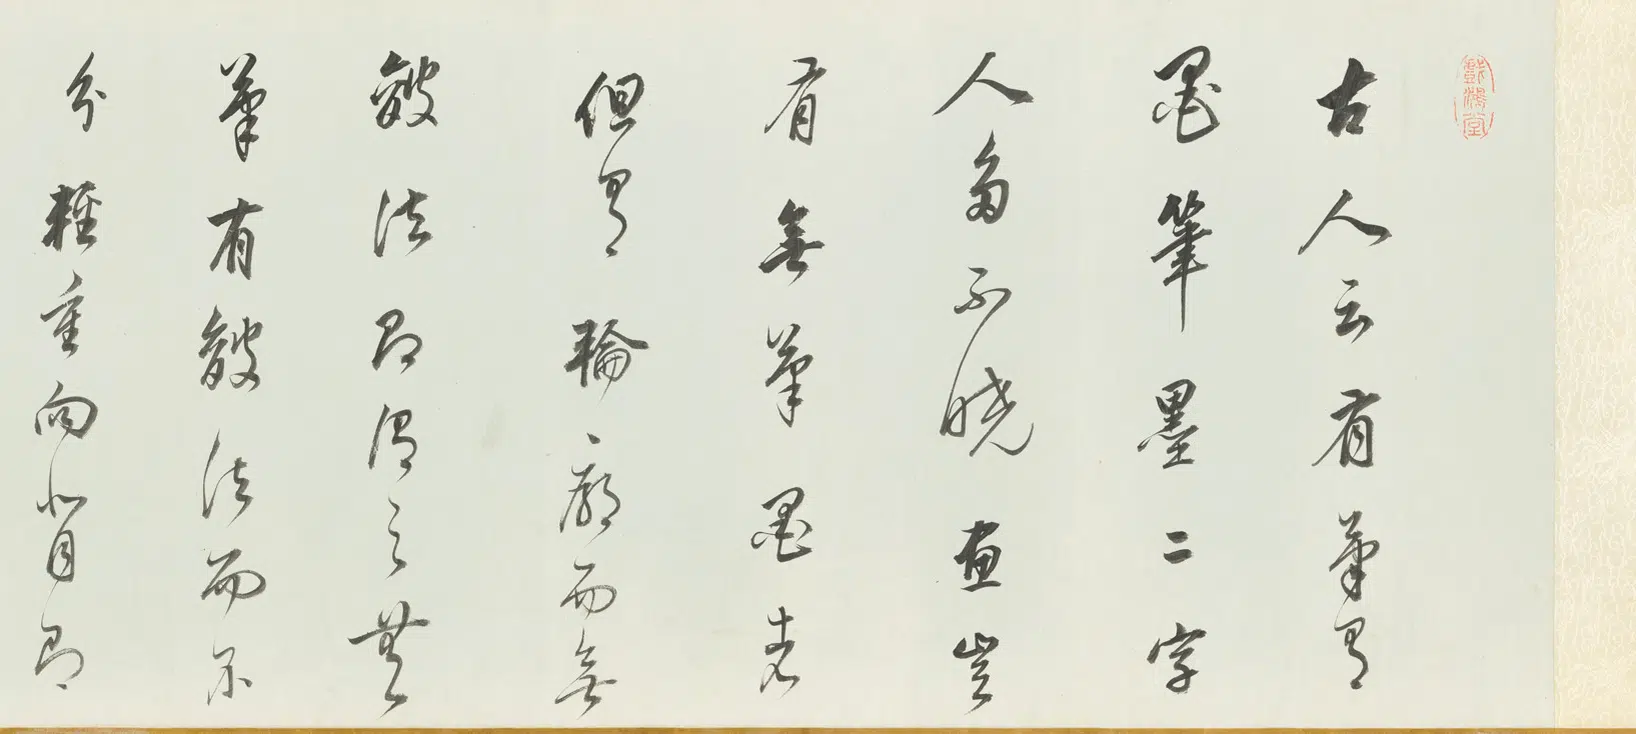 戲鴻堂
古人云有筆有
墨筆墨二字
人多不曉畫豈
有無筆墨者
但有輪廓而無
皴法即謂之無
筆有皴法而不
分輕重向背即